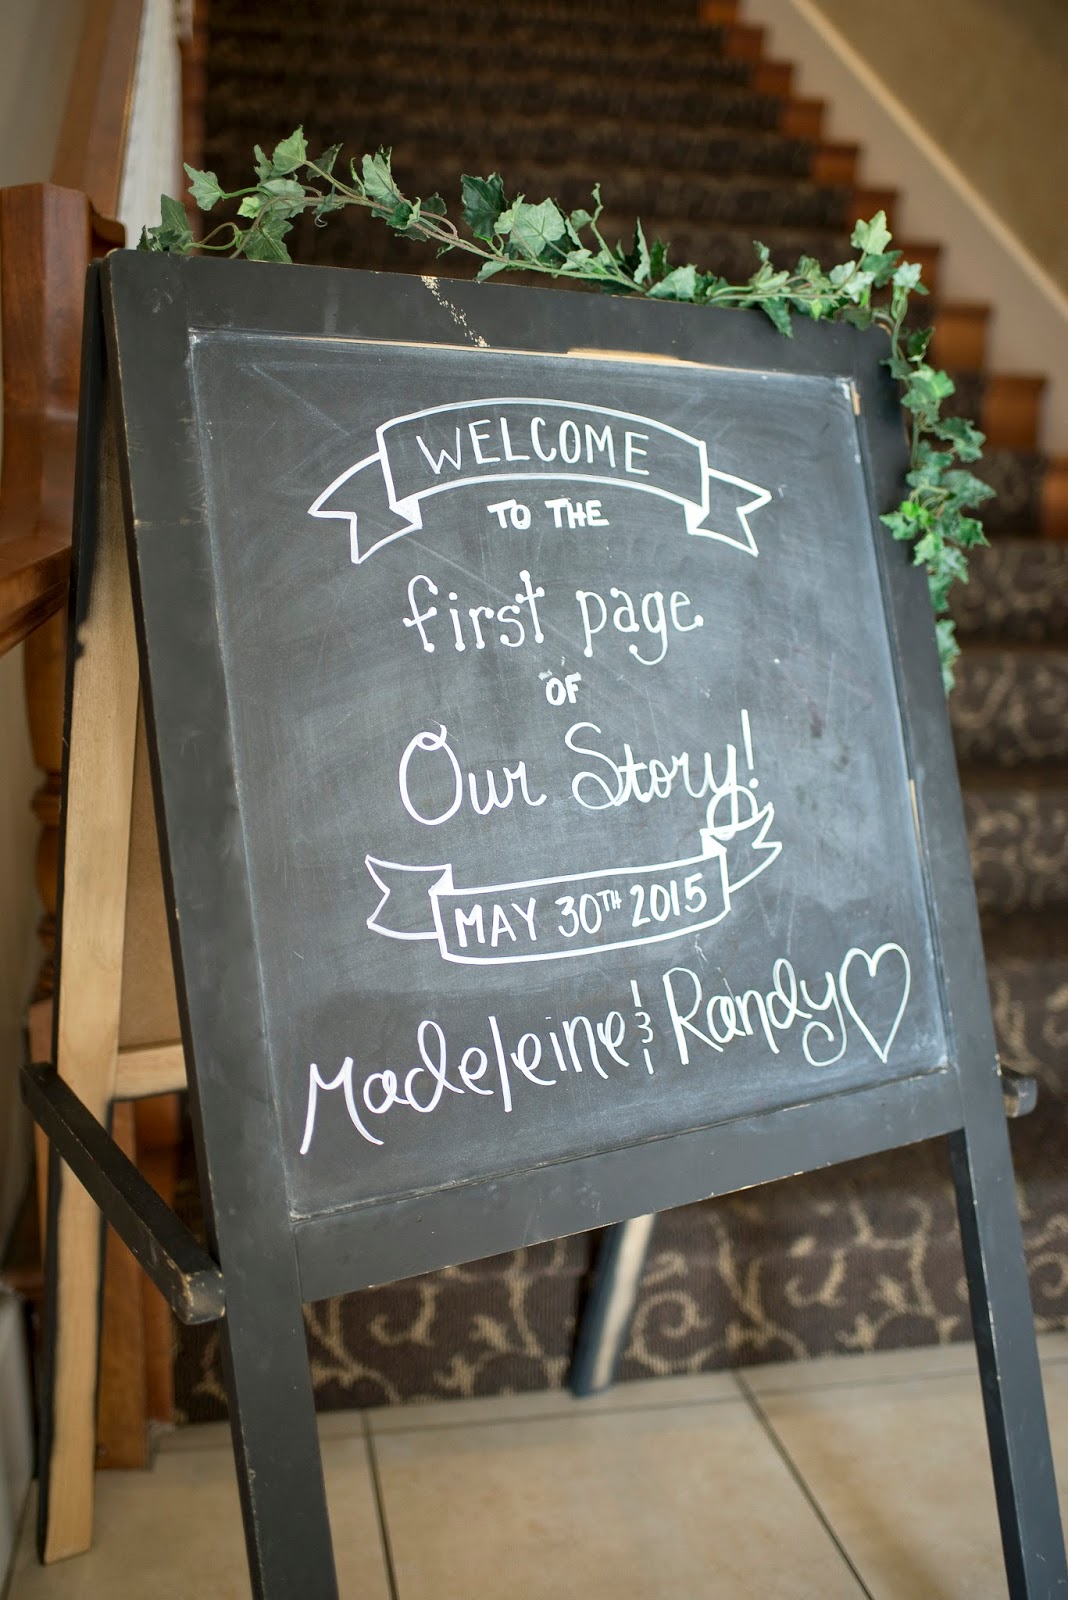 WELCOME
TO THE
first page
OF
Our Story!
MAY 30TH 2015
Madeleine & Randy